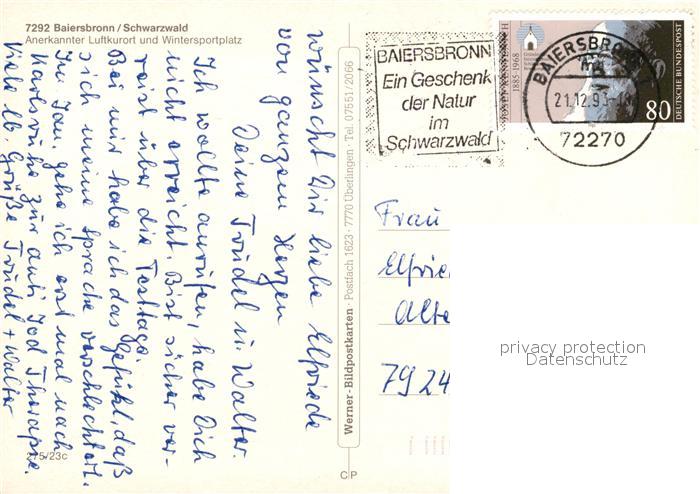 7292 Baiersbronn / Schwarzwald
Anerkannter Luftkurort und Wintersportplatz
wünscht Dir liebe Elfriede
von ganzem Herzen
Deine Trudel u. Walter.
Ich wollte anrufen, habe Dich
nicht erreicht. Bist sicher ver-
reist über die Festtage.
Bei mir habe ich das Gefühl, daß
sich meine Sprache verschlechtert.
Im Jan. gehe ich erst mal nach
Karlsruhe zur anti Jod Therapie.
Viele lb. Grüße Trudel + Walter
275/23c
Werner-Bildpostkarten · Postfach 1623 · 7770 Überlingen · Tel. 07551/2066
C P
BAIERSBRONN
Ein Geschenk
der Natur
im
Schwarzwald
BAIERSBRONN
21.12.93
72270
1885-1968
DEUTSCHE BUNDESPOST
80
Frau
Elfrie
Alte
7924
privacy protection
Datenschutz